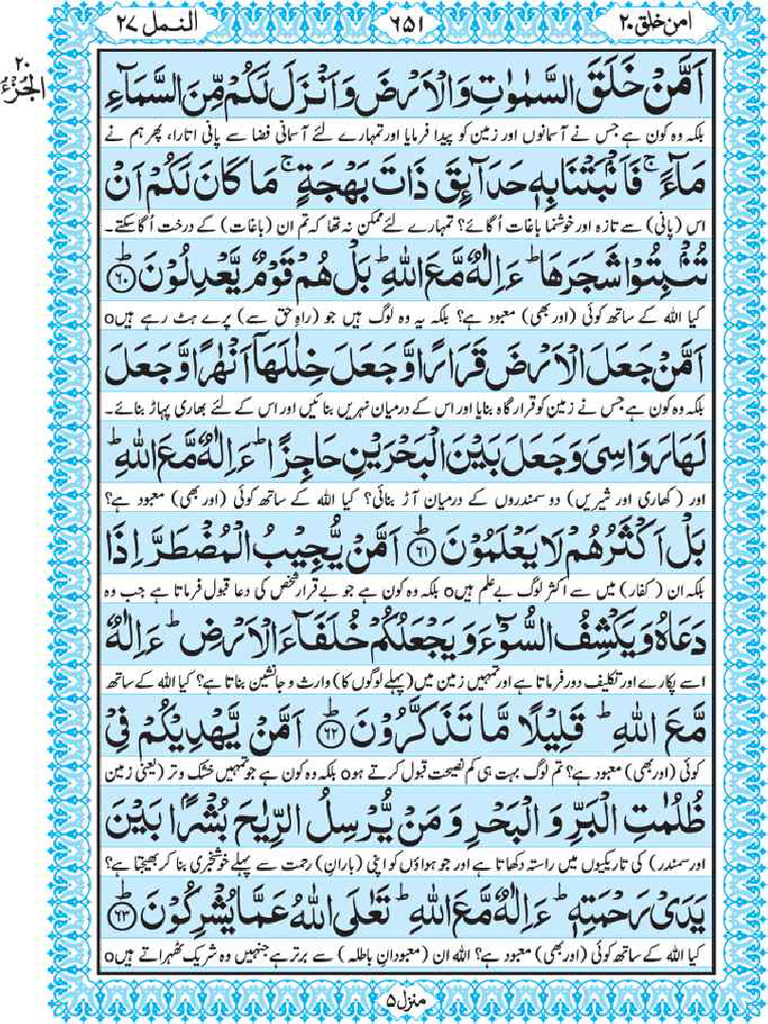 النمل ٢٧
٦٥١
امن خلق ٢٠
٢٠
الجُزْءُ
اَمَّنْ خَلَقَ السَّمٰوٰتِ وَالْاَرْضَ وَاَنْزَلَ لَكُمْ مِّنَ السَّمَآءِ
بلکہ وہ کون ہے جس نے آسمانوں اور زمین کو پیدا فرمایا اور تمہارے لئے آسمانی فضا سے پانی اتارا، پھر ہم نے
مَآءً ۚ فَاَنْۢبَتْنَا بِهٖ حَدَآئِقَ ذَاتَ بَهْجَةٍ ۚ مَا كَانَ لَكُمْ اَنْ
اس (پانی) سے تازہ اور خوشنما باغات اُگائے؟ تمہارے لئے ممکن نہ تھا کہ تم ان (باغات) کے درخت اُگا سکتے۔
تُنْۢبِتُوْا شَجَرَهَا ؕ ءَاِلٰهٌ مَّعَ اللّٰهِ ؕ بَلْ هُمْ قَوْمٌ يَّعْدِلُوْنَ ؕ﴿۶۰﴾
کیا اللہ کے ساتھ کوئی (اور بھی) معبود ہے؟ بلکہ یہ وہ لوگ ہیں جو (راہِ حق سے) پرے ہٹ رہے ہیںo
اَمَّنْ جَعَلَ الْاَرْضَ قَرَارًا وَّجَعَلَ خِلٰلَهَاۤ اَنْهٰرًا وَّجَعَلَ
بلکہ وہ کون ہے جس نے زمین کو قرار گاہ بنایا اور اس کے درمیان نہریں بنائیں اور اس کے لئے بھاری پہاڑ بنائے۔
لَهَا رَوَاسِیَ وَجَعَلَ بَيْنَ الْبَحْرَيْنِ حَاجِزًا ؕ ءَاِلٰهٌ مَّعَ اللّٰهِ ؕ
اور (کھاری اور شیریں) دو سمندروں کے درمیان آڑ بنائی؟ کیا اللہ کے ساتھ کوئی (اور بھی) معبود ہے؟
بَلْ اَكْثَرُهُمْ لَا يَعْلَمُوْنَ ؕ﴿۶۱﴾ اَمَّنْ يُّجِيْبُ الْمُضْطَرَّ اِذَا
بلکہ ان (کفار) میں سے اکثر لوگ بے علم ہیںo بلکہ وہ کون ہے جو بے قرار شخص کی دعا قبول فرماتا ہے جب وہ
دَعَاهُ وَيَكْشِفُ السُّوْٓءَ وَيَجْعَلُكُمْ خُلَفَآءَ الْاَرْضِ ؕ ءَاِلٰهٌ
اسے پکارے اور تکلیف دور فرماتا ہے اور تمہیں زمین میں (پہلے لوگوں کا) وارث و جانشین بناتا ہے؟ کیا اللہ کے ساتھ
مَّعَ اللّٰهِ ؕ قَلِيْلًا مَّا تَذَكَّرُوْنَ ؕ﴿۶۲﴾ اَمَّنْ يَّهْدِيْكُمْ فِیْ
کوئی (اور بھی) معبود ہے؟ تم لوگ بہت ہی کم نصیحت قبول کرتے ہوo بلکہ وہ کون ہے جو تمہیں خشک و تر (یعنی زمین
ظُلُمٰتِ الْبَرِّ وَ الْبَحْرِ وَ مَنْ يُّرْسِلُ الرِّيٰحَ بُشْرًۢا بَيْنَ
اور سمندر) کی تاریکیوں میں راستہ دکھاتا ہے اور جو ہواؤں کو اپنی (بارانِ) رحمت سے پہلے خوشخبری بنا کر بھیجتا ہے؟
يَدَیْ رَحْمَتِهٖ ؕ ءَاِلٰهٌ مَّعَ اللّٰهِ ؕ تَعٰلَی اللّٰهُ عَمَّا يُشْرِكُوْنَ ؕ﴿۶۳﴾
کیا اللہ کے ساتھ کوئی (اور بھی) معبود ہے؟ اللہ ان (معبودانِ باطلہ) سے برتر ہے جنہیں وہ شریک ٹھہراتے ہیںo
منزل ۵